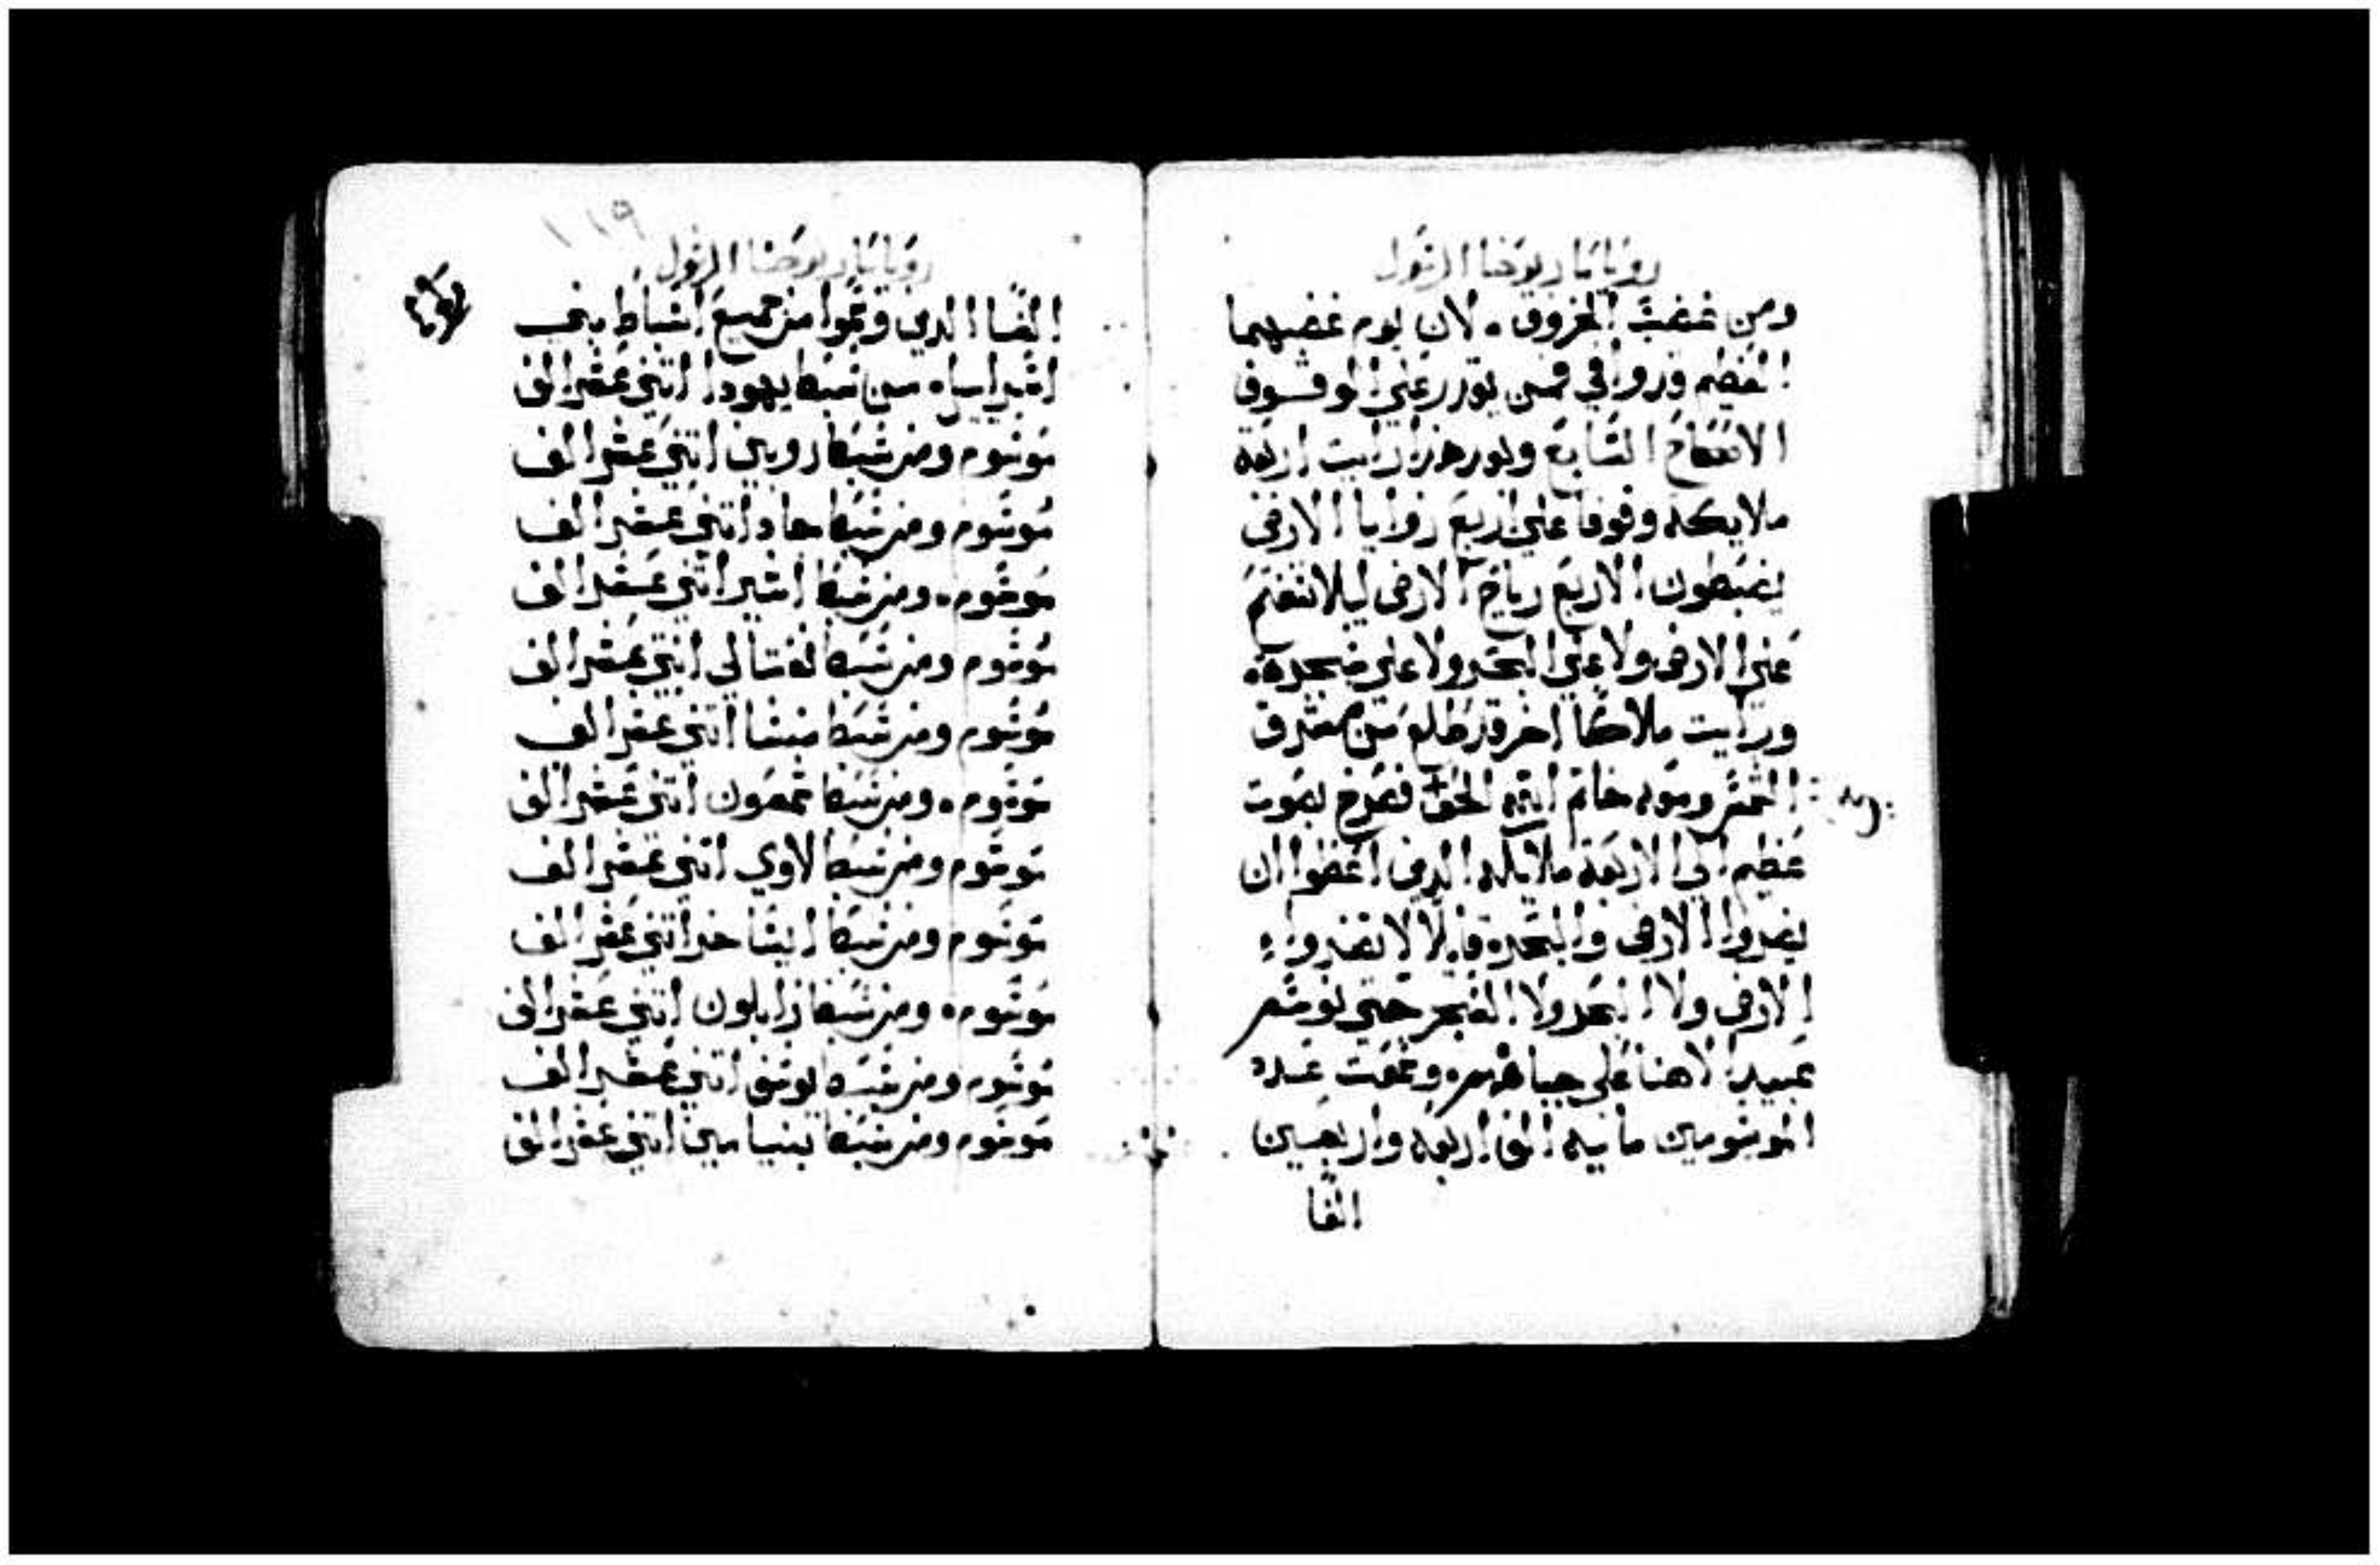 رويا مار يوحنا الرسول
ومن غضب الخروف . لان يوم غضبهما
العظيم قد وافي فمن يقدر علي الوقوف
الاصحاح السابع وبعد هدا رايت اربعة
ملايكه وقوفا علي اربع زوايا الارض
يضبطون الاربع رياح الارض ليلا تنفتح
علي الارض ولا علي البحر ولا علي شجره .
ورايت ملاكا اخر قد طلع من مشرق
الشمس ومعه خاتم الله الحق فصرخ بصوت
عظيم الي الاربعة ملايكه الدين اعطوا ان
يضروا الارض والبحر قايلا لا تضروا
الارض ولا البحر ولا الشجر حتي نوسم
عبيد الاهنا علي جباههم . وسمعت عدد
الموسومين مايه الف اربعه واربعين
الفا
١١٩
رويا مار يوحنا الرسول
الفا الدين وسموا من جميع اسباط بني
اسراييل . من سبط يهودا اتني عشر الف
موسوم ومن سبط روبين اتني عشر الف
موسوم ومن سبط جاد اتني عشر الف
موسوم . ومن سبط اشير اتني عشر الف
موسوم ومن سبط نفتالي اتني عشر الف
موسوم ومن سبط منسا اتني عشر الف
موسوم . ومن سبط شمعون اتني عشر الف
موسوم ومن سبط لاوي اتني عشر الف
موسوم ومن سبط ايساخر اتني عشر الف
موسوم . ومن سبط زابلون اتني عشر الف
موسوم ومن سبط يوسف اتني عشر الف
موسوم ومن سبط بنيامين اتني عشر الف